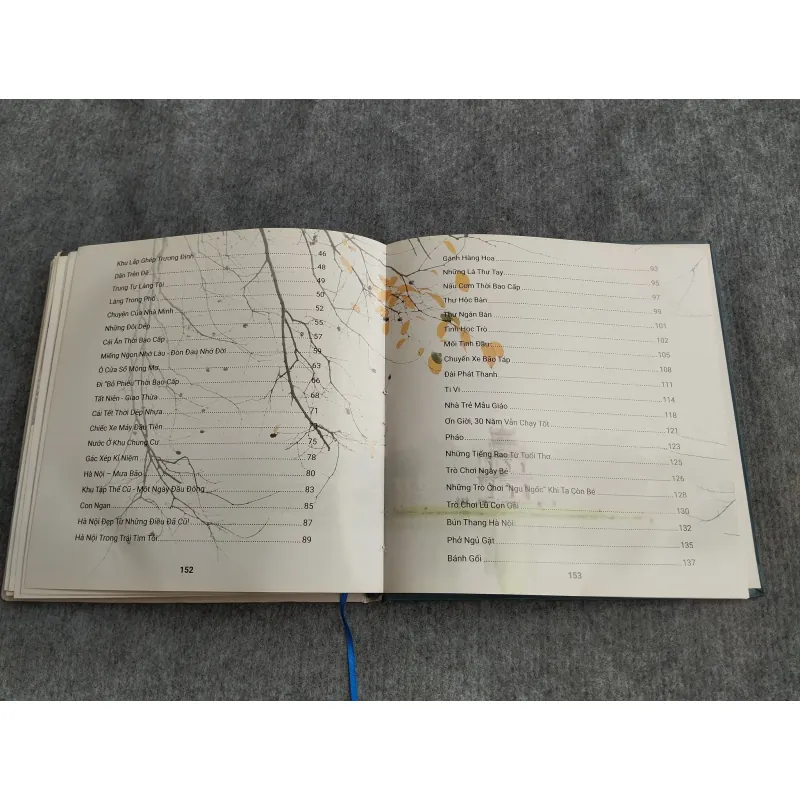 Khu Lắp Ghép Trương Định 46
Dân Trên Đê 48
Trung Tự Làng Tôi 49
Làng Trong Phố 50
Chuyện Của Nhà Mình 52
Những Đôi Dép 55
Cái Ăn Thời Bao Cấp 57
Miếng Ngon Nhớ Lâu - Đòn Đau Nhớ Đời 59
Ô Cửa Sổ Mộng Mơ 63
Đi "Bỏ Phiếu" Thời Bao Cấp 66
Tất Niên - Giao Thừa 68
Cái Tết Thời Dép Nhựa 71
Chiếc Xe Máy Đầu Tiên 73
Nước Ở Khu Chung Cư 75
Gác Xép Kỉ Niệm 78
Hà Nội – Mưa Bão 80
Khu Tập Thể Cũ - Một Ngày Đầu Đông 83
Con Ngan 85
Hà Nội Đẹp Từ Những Điều Đã Cũ! 87
Hà Nội Trong Trái Tim Tôi 89
152
Gánh Hàng Hoa 93
Những Lá Thư Tay 95
Nấu Cơm Thời Bao Cấp 97
Thư Hộc Bàn 99
Thư Ngăn Bàn 101
Tình Học Trò 102
Mối Tình Đầu 105
Chuyến Xe Bão Táp 108
Đài Phát Thanh 111
Ti Vi 114
Nhà Trẻ Mẫu Giáo 118
Ơn Giời, 30 Năm Vẫn Chạy Tốt 121
Pháo 123
Những Tiếng Rao Từ Tuổi Thơ 125
Trò Chơi Ngày Bé 126
Những Trò Chơi "Ngu Ngốc" Khi Ta Còn Bé 128
Trò Chơi Lũ Con Gái 130
Bún Thang Hà Nội 132
Phở Ngủ Gật 135
Bánh Gối 137
153